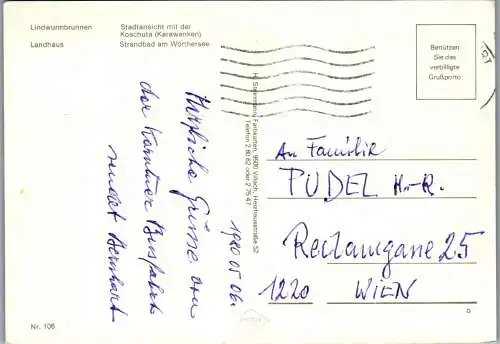 Lindwurmbrunnen
Stadtansicht mit der
Koschuta (Karawanken)
Landhaus
Strandbad am Wörthersee
Benützen
Sie das
verbilligte
Grußporto.
1920 05 06.
Herzliche Grüsse von
der Kärntner Busfahrt
sendet Bernhart
Farbkarten, 9500 Villach,
Telefon 2 80 82 oder 2 75 47
An Familie
PUDEL H.-R.
Reclamgasse 25
1220 WIEN
Nr. 106